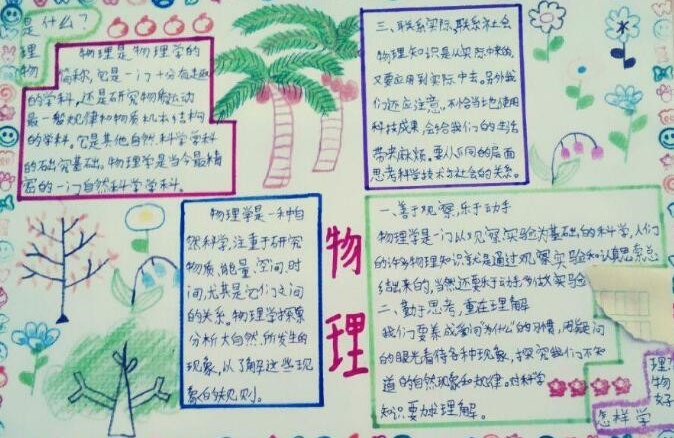 是什么?
物理
物理是物理学的
简称,它是一门十分有趣
的学科。还是研究物质运动
最一般规律和物质机本结构
的学科。它是其他自然科学学科
的础究基础。物理学是当今最精
密的一门自然科学学科。
三、联系实际,联系社会
物理知识是从实际中来的,
又要应用到实际中去。另外我
们还应注意,不恰当地使用
科技成果,会给我们的生活
带来麻烦。要从不同的层面
思考科学技术与社会的关系。
物理学是一种自
然科学,注重于研究
物质,能量,空间,时
间,尤其是它们之间
的关系。物理学探索
分析大自然,所发生的
现象,以了解这些现
象的规则。
物理
一、善于观察,乐于动手
物理学是一门以观察实验为基础的科学,人们
的许多物理知识就是通过观察实验和认真思索总
结出来的,当然还要乐于动手多做实验
二、勤于思考,重在理解
我们要养成爱问为什么"的习惯,用疑问
的眼光看待各种现象,探究我们不知
道的自然现象和规律。对科学
知识要求理解。
怎样学
好物理